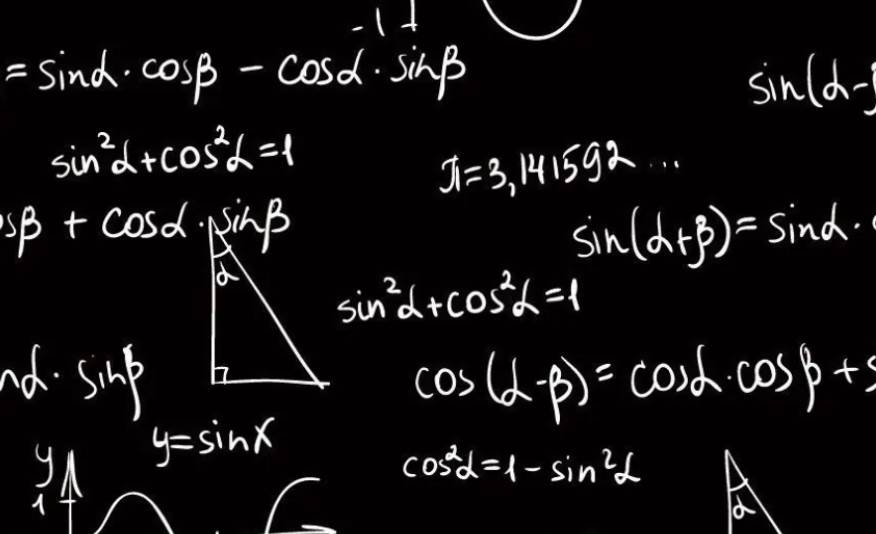 -1
= sinα · cosβ − cosα · sinβ
sin(α-
sin²α+cos²α=1
π=3,141592...
sβ + cosα · sinβ
sin(α+β)= sinα ·
α
sin²α+cos²α=1
α · sinβ
cos(α-β)= cosα·cosβ+s
y=sinx
y
cos²α=1-sin²α
1
α